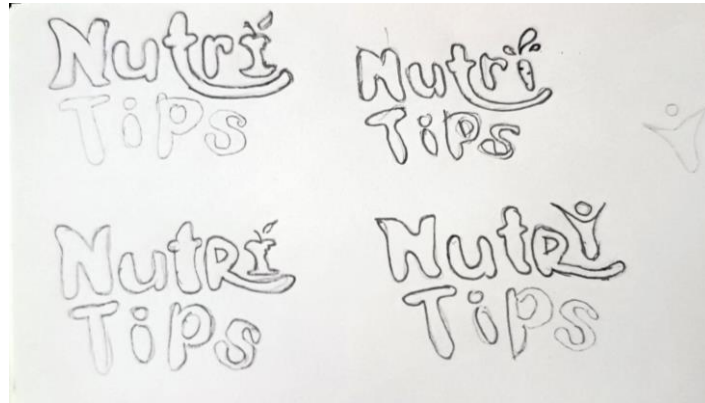 Nutri
Tips
Nutri
Tips
NutRi
Tips
NutRi
Tips